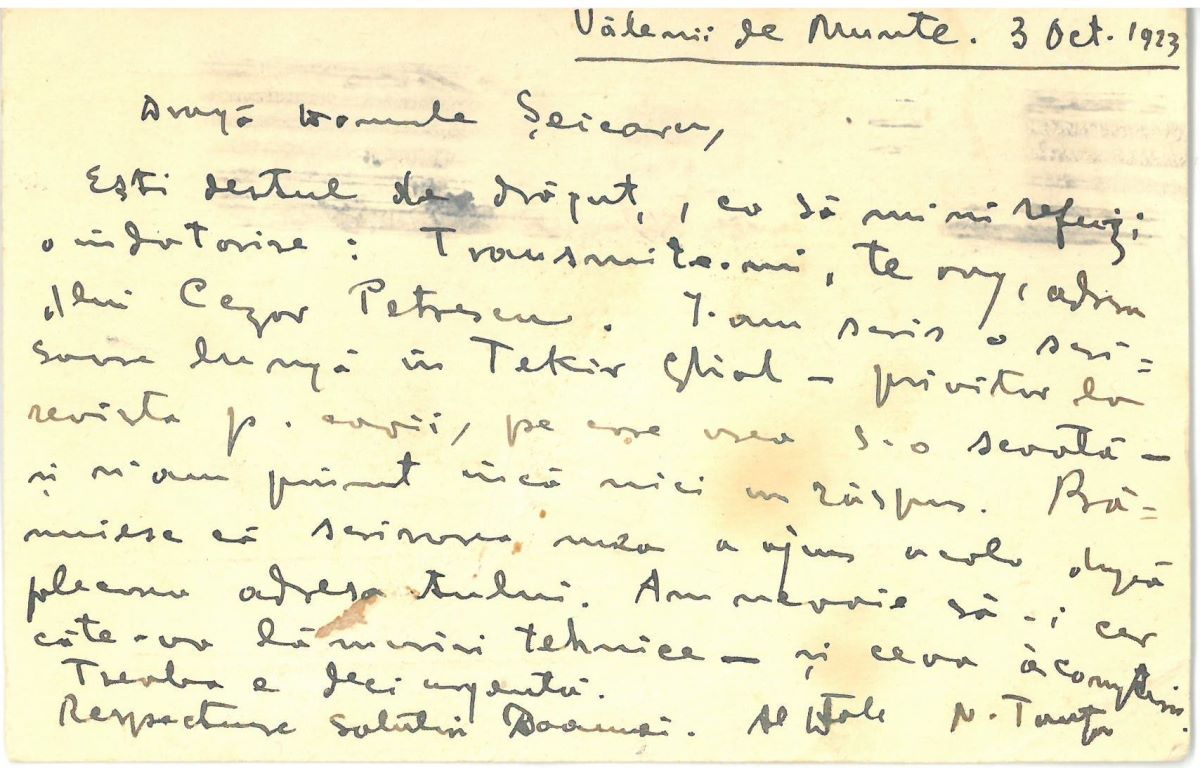 Vălenii de Munte. 3 Oct. 1923
Dragă Domnule Șeicaru,
Ești destul de drăguț, ca să nu-mi refuzi
o îndatorire: Transmite-mi, te rog, adresa
dlui Cezar Petrescu. I-am scris o scri=
soare lungă în Tekir Ghiol — privitor la
revista p. copii, pe care vrea s-o scoată —
și n'am primit încă nici un răspuns. Bă=
nuiesc că scrisoarea mea a ajuns acolo după
plecarea adresantului. Am nevoie să-i cer
câte-va lămuriri tehnice — și ceva
Treaba e deci urgentă.
Respectuoase salutări Doamnei. Al Dtale N.